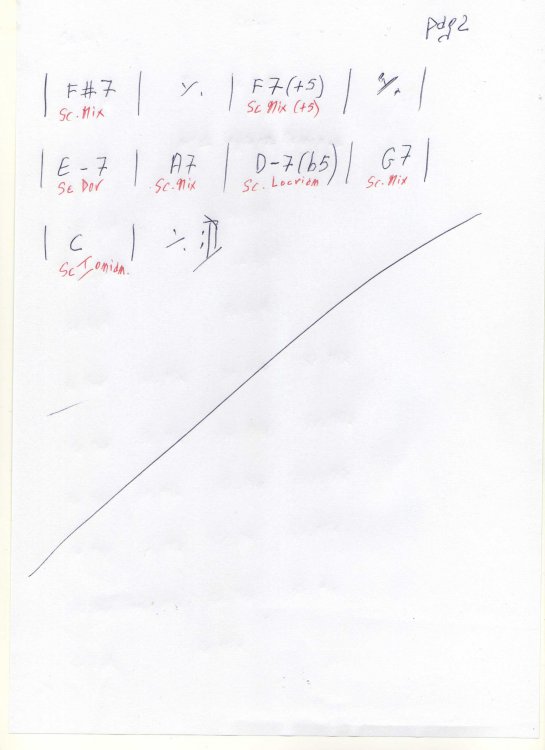 pag 2
| F#7 | ٪ | F7(+5) | ٪ |
Sc. Mix Sc Mix (+5)
| E-7 | A7 | D-7(b5) | G7 |
Sc Dor Sc. Mix Sc. Locrian Sc. Mix
| C | ٪ :||
Sc Ionian.